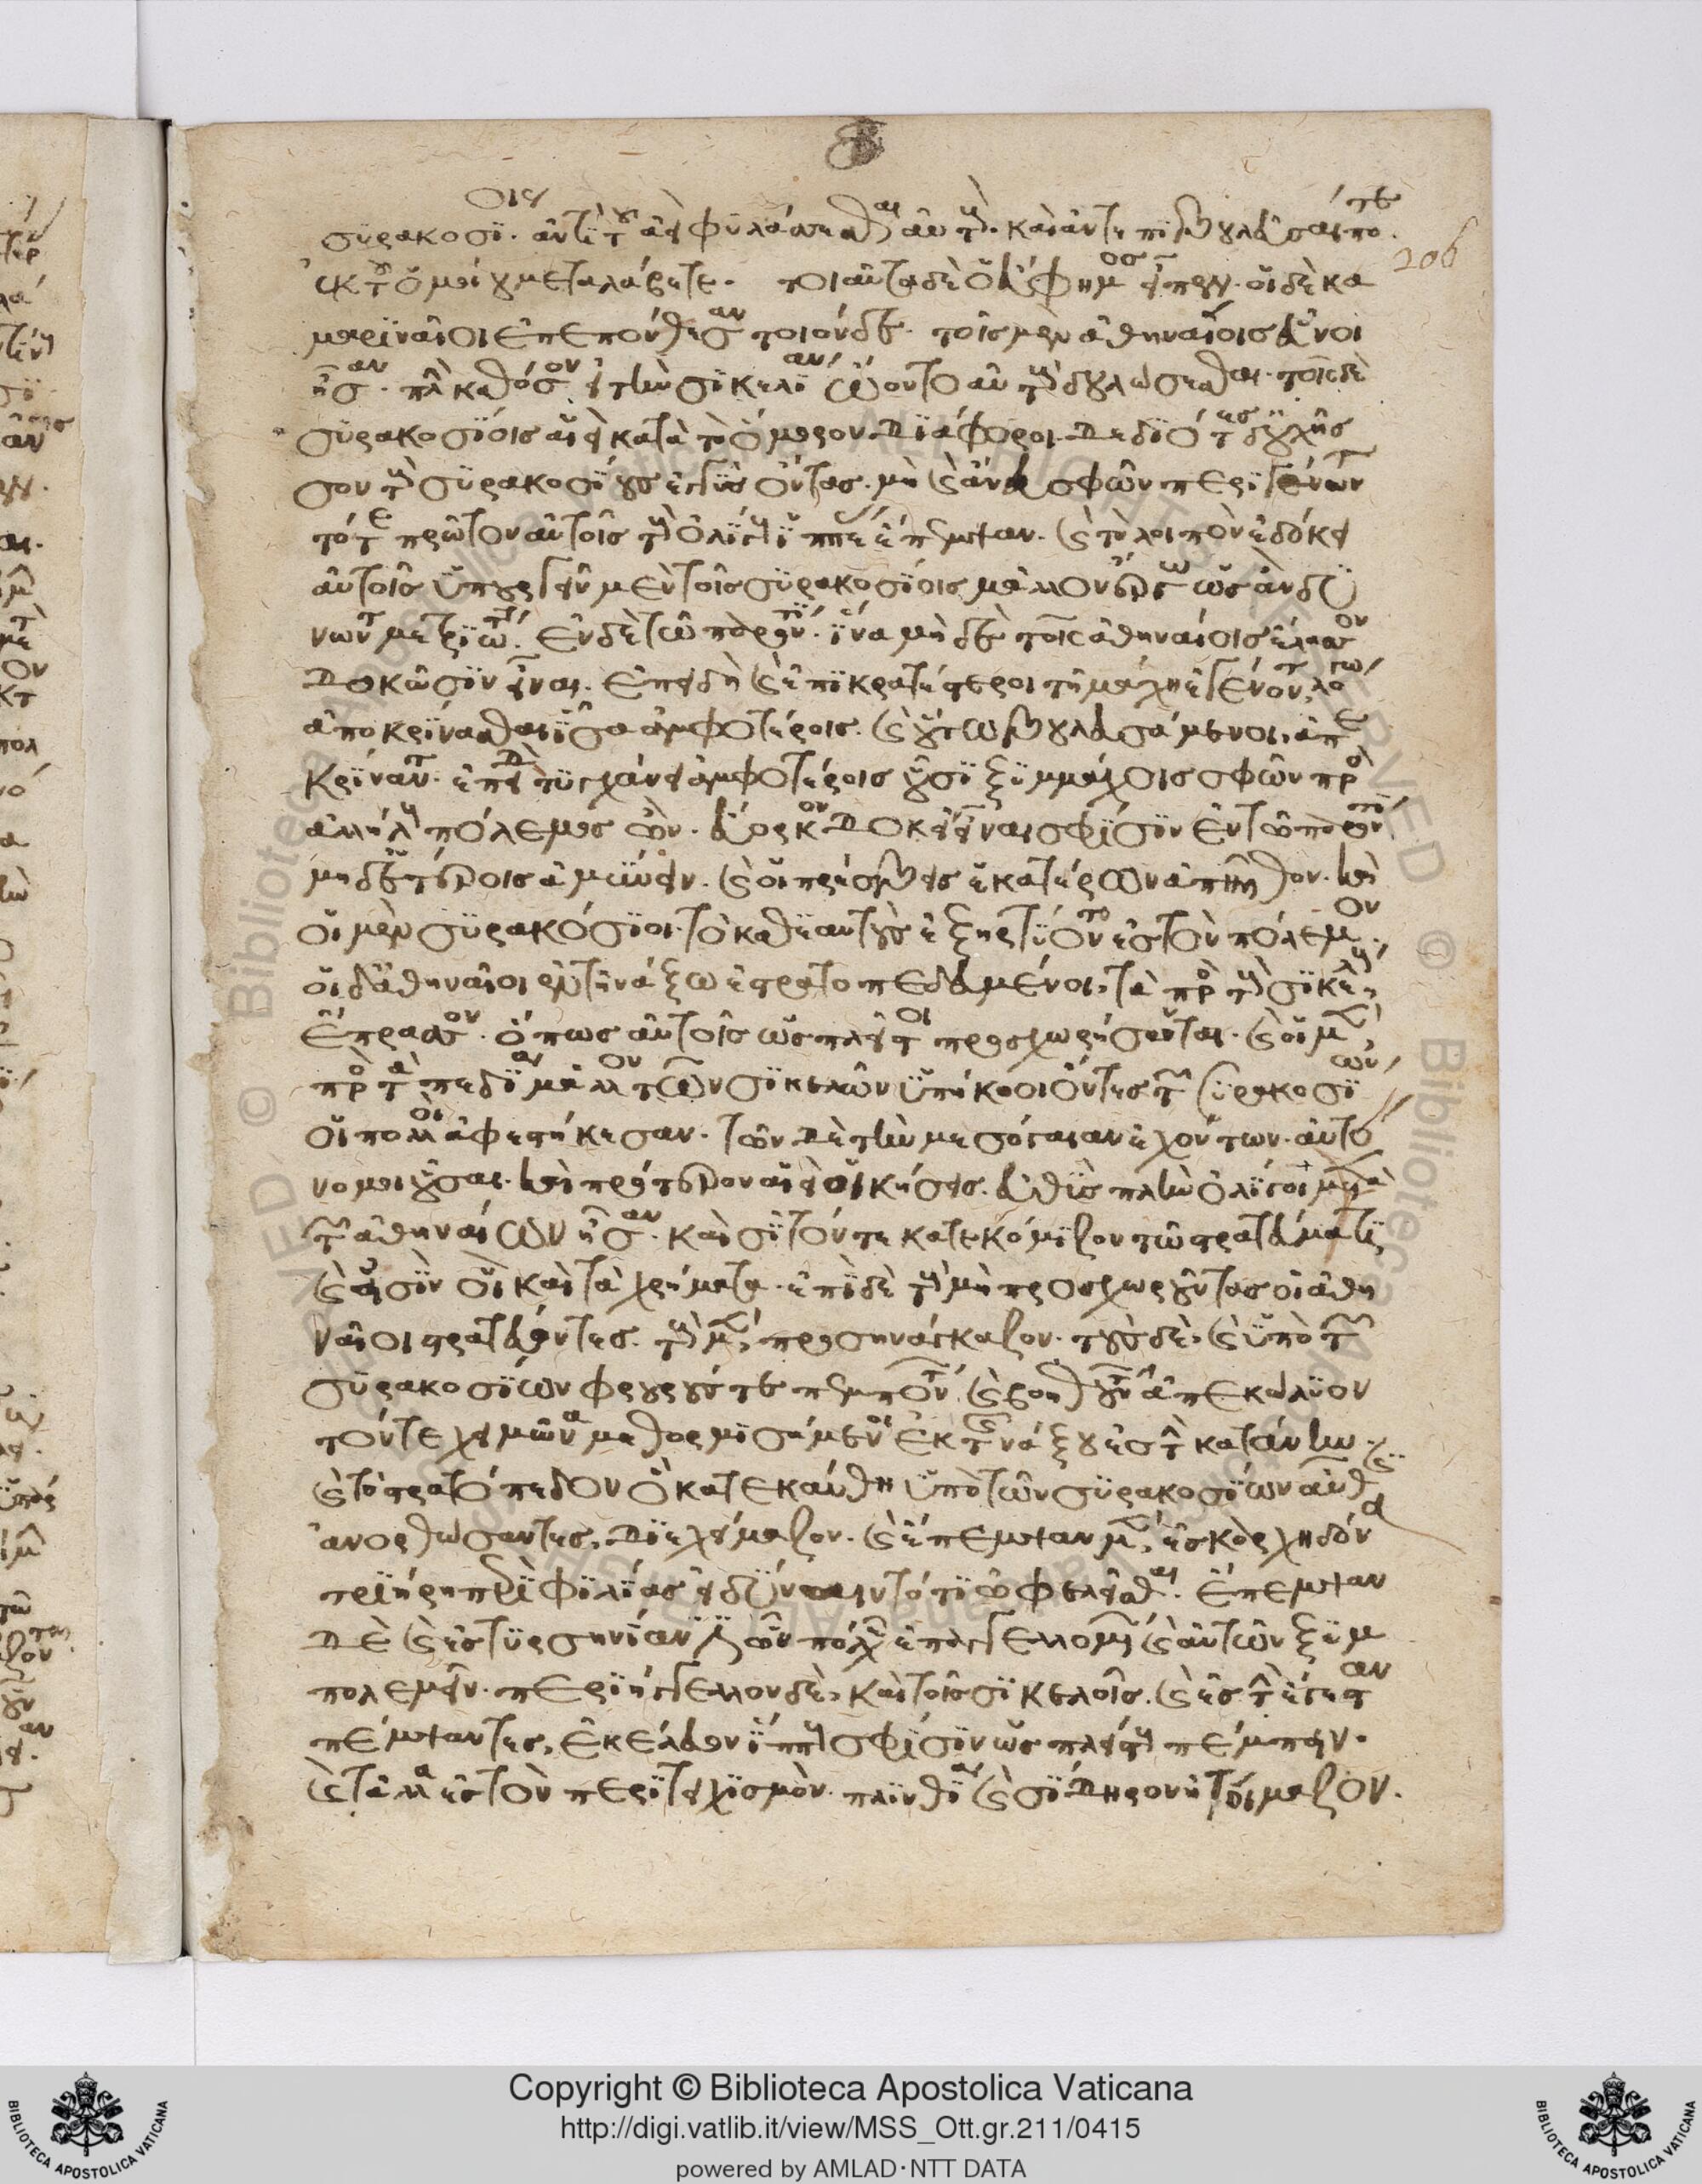 206
συρακοσίοις ἀντὶ τοῦ ἀεὶ φυλάσσεσθαι αὐτοὺς. καὶ ἀντεπιβουλεῦσαί ποτε
ἐκ τοῦ ὁμοίου μεταλάβετε. τοιαῦτα δὲ ὁ εὔφημος εἶπεν. οἱ δὲ κα
μαριναῖοι ἐπεπόνθεσαν τοιόνδε. τοῖς μὲν ἀθηναίοις εὖνοι
ἦσαν. πλὴν καθόσον εἰ τὴν σικελίαν ᾤοντο αὐτοὺς δουλώσεσθαι. τοῖς δὲ
συρακοσίοις αἰεὶ κατὰ τὸ ὅμορον διάφοροι. δεδιότες δ οὐχ ἧσ
σον τοὺς συρακοσίους ἐγγὺς ὄντας. μὴ καὶ ἄνευ σφῶν περιγένωνται
τότε πρῶτον αὐτοῖς τοὺς ὀλίγους ἱππέας ἔπεμψαν. καὶ τὸ λοιπὸν ἐδόκει
αὐτοῖς ὑπουργεῖν μὲν τοῖς συρακοσίοις μᾶλλον ἔργω ὡς ἂν δύ
νωνται μετριώτατα. ἐν δὲ τῶ παρόντι. ἵνα μηδὲ τοῖς ἀθηναίοις ἔλασσον
δοκῶσιν εἶναι. ἐπειδὴ καὶ ἐπικρατέστεροι τῆ μάχη ἐγένοντο, λόγω
ἀποκρίνασθαι ἴσα ἀμφοτέροις. καὶ οὕτω βουλευσάμενοι, ἀπε
κρίναντο. ἐπειδὴ τυγχάνει ἀμφοτέροις οὖσι ξυμμάχοις σφῶν πρὸς
ἀλλήλους πόλεμος ὢν. εὔορκον δοκεῖ εἶναι σφίσιν ἐν τῶ παρόντι
μηδετέροις ἀμύνειν. καὶ οἱ πρέσβεις ἑκατέρων ἀπῆλθον. καὶ
οἱ μὲν συρακόσιοι. τὸ καθ ἑαυτοὺς ἐξηρτύοντο ἐς τὸν πόλεμον.
οἱ δ ἀθηναῖοι ἐν τῆ νάξω ἐστρατοπεδευμένοι, τὰ πρὸς τοὺς σικελοὺς
ἔπρασσον. ὅπως αὐτοῖς ὡς πλεῖστοι προσχωρήσονται. καὶ οἱ μὲν
πρὸς τὰ πεδία μᾶλλον τῶν σικελῶν ὑπήκοοι ὄντες τῶν συρακοσίων
οἱ πολλοὶ ἀφεστήκεσαν. τῶν δὲ τὴν μεσόγαιαν ἐχόντων. αὐτό
νομοι οὖσαι. καὶ πρότερον αἰεὶ οἰκήσεις. εὐθὺς πλὴν ὀλίγοι μετὰ
τῶν ἀθηναίων ἦσαν. καὶ σῖτόν τε κατεκόμιζον τῶ στρατεύματι
καὶ εἰσὶν οἳ καὶ τὰ χρήματα. ἐπὶ δὲ τοὺς μὴ προσχωροῦντας οἱ ἀθη
ναῖοι στρατεύοντες. τοὺς μὲν, προσηνάγκαζον. τοὺς δὲ, καὶ ὑπὸ τῶν
συρακοσίων φρουρούς τε πεμπόντων, καὶ βοηθούντων ἀπεκώλυον
τόν τε χειμῶνα μεθορμισάμενοι ἐκ τῆς νάξου ἐς τὴν κατάνην.
καὶ τὸ στρατόπεδον ὃ κατεκαύθη ὑπὸ τῶν συρακοσίων αὖθις
ἀνορθώσαντες, διεχείμαζον. καὶ ἔπεμψαν μὲν, ἐς καρχηδόνα
τριήρη περὶ φιλίας εἰ δύναιντό τι ὠφελεῖσθαι. ἔπεμψαν
δὲ καὶ ἐς τυρσηνίαν ἔστιν ὧν πόλεων ἐπαγγελλομένων καὶ αὐτῶν ξυμ
πολεμεῖν. περιήγγελλον δὲ, καὶ τοῖς σικελοῖς. καὶ ἐς τὴν ἔγεσταν
πέμψαντες, ἐκέλευον ἵππους σφίσιν ὡς πλείστους πέμπειν.
καὶ τἄλλα ἐς τὸν περιτειχισμὸν. πλινθία καὶ σίδηρον ἡτοίμαζον.
Copyright © Biblioteca Apostolica Vaticana
http://digi.vatlib.it/view/MSS_Ott.gr.211/0415
powered by AMLAD·NTT DATA